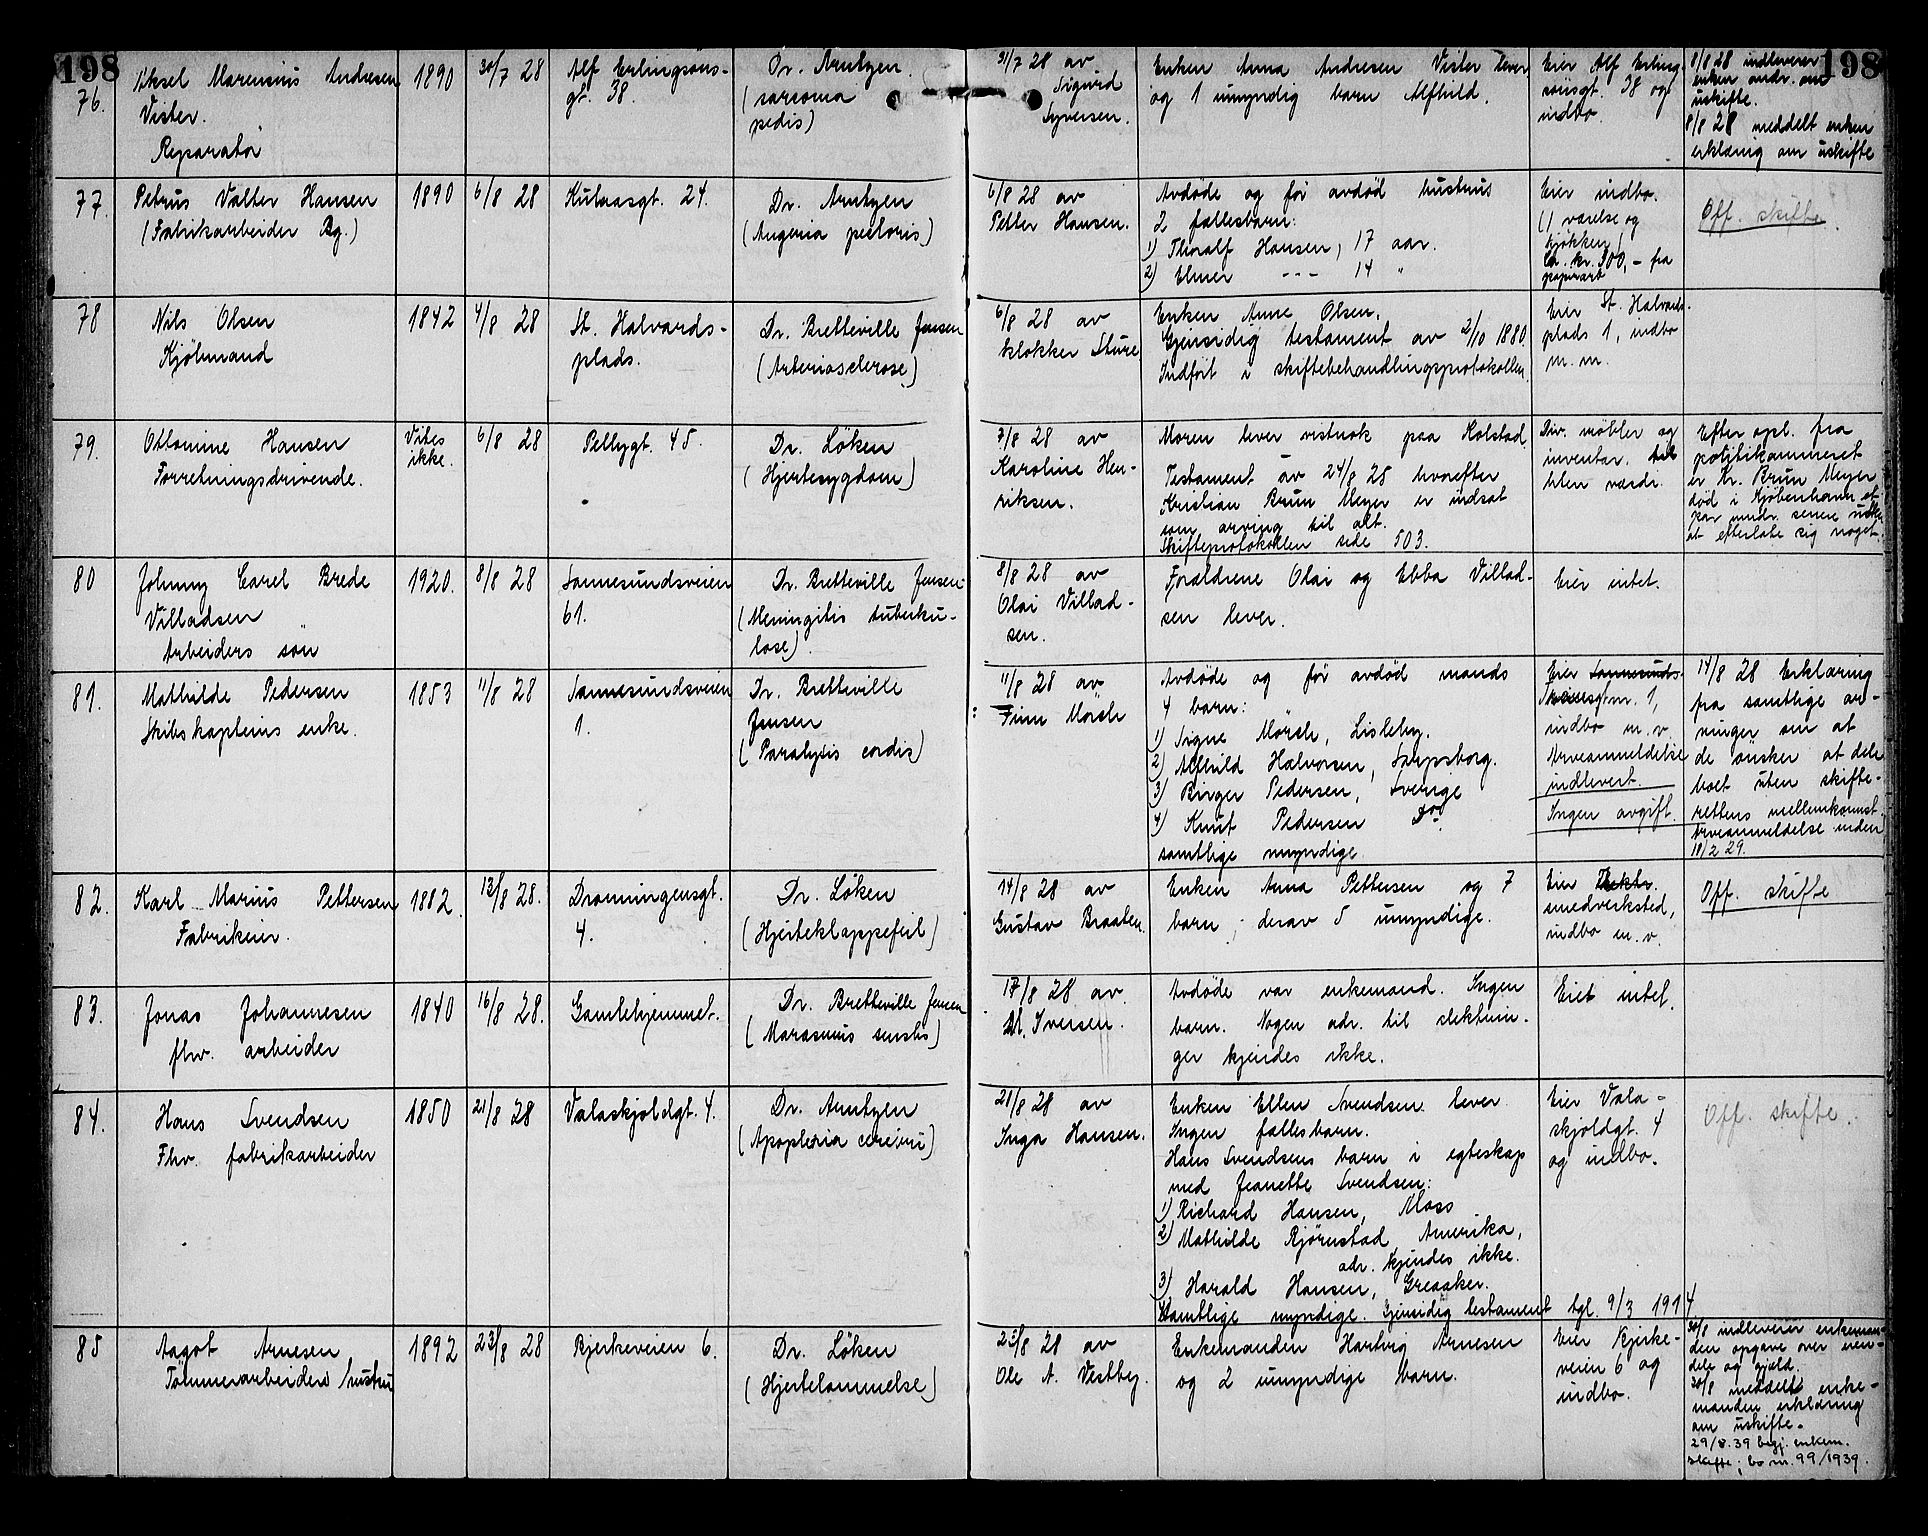 198
198
76.
Aksel Marensius Andresen
Vister.
Reparatør
1890
30/7 28
Alf Erlingsøns-
gt. 38.
Dr. Arntzen.
(sarcoma
pedis)
31/7 28 av
Sigurd
Syversen.
Enken Anna Andresen Vister lever
og 1 umyndig barn Alfhild.
Eier Alf Erling-
sönsgt. 38 og
indbo.
8/8 28 indleverer
enken andr. om
uskifte.
8/8 28 meddelt enken
erklæring om uskifte
77.
Petrus Valter Hansen
(Fabrikarbeider Bg.)
1890
6/8 28
Kulaasgt. 24.
Dr. Arntzen
(Angeria pectoris)
6/8 28 av
Petter Hansen.
Avdöde og för avdöd hustrus
2 fællesbarn:
1) Thoralf Hansen, 17 aar.
2) Elmer --- 14 "
Eier indbo.
(1 værelse og
kjökken)
Ca. kr. 300,- fra
Off. skifte.
78
Nils Olsen
Kjöbmand
1842
4/8 28
St. Halvards-
plads.
Dr. Bretteville Jensen
(Arteriosclerose)
6/8 28 av
klokker Sture
Enken Anne Olsen.
Gjensidig testament av 2/10 1880.
Indfört i skiftebehandlingsprotokollen.
Eier St. Halvards-
plads 1, indbo
m. m.
79.
Ottomine Hansen
Forretningsdrivende.
Vites
ikke.
6/8 28
Pellygt. 45.
Dr. Löken
(Hjertesygdom)
7/8 28 av
Karoline Hen-
riksen.
Moren lever vistnok paa Kolstad.
Testament av 24/8 28 hvorefter
Kristian Brun Meyer er indsat
som arving til alt.
Skifteprotokollen side 503.
Div. möbler og
inventar. til
liten værdi.
Efter opl. fra
politikammeret
er Kr. Brun Meyer
död i Kjöbenhavn et
par mndr. senere uten
at efterlate sig noget.
80
Johnny Carel Brede
Villadsen
Arbeiders sön
1920.
8/8 28
Sannesundsveien
61.
Dr. Bretteville Jensen
(Meningitis tuberku-
lose)
8/8 28 av
Olai Villad-
sen.
Forældrene Olai og Ebba Villad-
sen lever.
Eier intet.
81.
Mathilde Pedersen
Skibskapteins enke.
1853
11/8 28
Sannesundsveien
1.
Dr. Bretteville
Jensen
(Paralysis cordis)
11/8 28 av
Finn Mörch
Avdöde og för avdöd mands
4 barn:
1) Signe Mörch, Lisleby.
2) Alfhild Halvorsen, Sarpsborg.
3) Birger Pedersen, Sverige
4) Knut Pedersen Do.
samtlige myndige.
Eier Sannesunds-
nr. 1,
indbo m. v.
Arveanmeldelse
indlevert.
Ingen avgift.
14/8 28 Erklæring
fra samtlige ar-
vinger om at
de önsker at dele
boet uten skifte-
rettens mellemkomst.
Arveanmeldelse inden
11/2 29.
82.
Karl Marius Pettersen
Fabrikeier.
1882.
12/8 28.
Dronningensgt.
4.
Dr. Löken
(Hjerteklappefeil)
14/8 28 av
Gustav Braaten.
Enken Anna Pettersen og 7
barn, derav 5 umyndige.
Eier
smedverksted,
indbo m. v.
Off. skifte
83.
Jonas Johannesen
fhv. arbeider
1840
16/8 28.
Gamlehjemmet.
Dr. Bretteville Jensen
(Marasmus senilis)
17/8 28 av
M. Iversen.
Avdöde var enkemand. Ingen
barn. Nogen adr. til slektnin-
ger kjendes ikke.
Eiet intet.
84.
Hans Svendsen
Fhv. fabrikarbeider
1850
21/8 28
Valaskjoldgt. 4.
Dr. Arntzen
(Apoplexia cerebri)
21/8 28 av
Inga Hansen.
Enken Ellen Svendsen lever.
Ingen fællesbarn.
Hans Svendsens barn i egteskap
med Jeanette Svendsen:
1) Richard Hansen, Moss
2) Mathilde Bjørnstad Amerika,
adr. kjendes ikke.
3) Harald Hansen, Greaaker.
Samtlige myndige. Gjensidig testament tgl. 9/3 1914
Eier Vala-
skjoldgt. 4
og indbo.
Off. skifte.
85
Aagot Arnesen
Tömmerarbeiders hustru
1892
23/8 28
Bjerkeveien 6.
Dr. Löken
(Hjertelammelse)
23/8 28 av
Ole A. Vestby.
Enkemanden Hartvig Arnesen
og 2 umyndige barn.
Eier Bjerke-
veien 6 og
indbo.
30/8 indleverer enkeman-
den opgave over eien-
dele og gjeld.
30/8 meddelt enke-
manden erklæring
om uskifte.
29/8.39 begj. enkem.
skifte, bo nr. 99/1939.